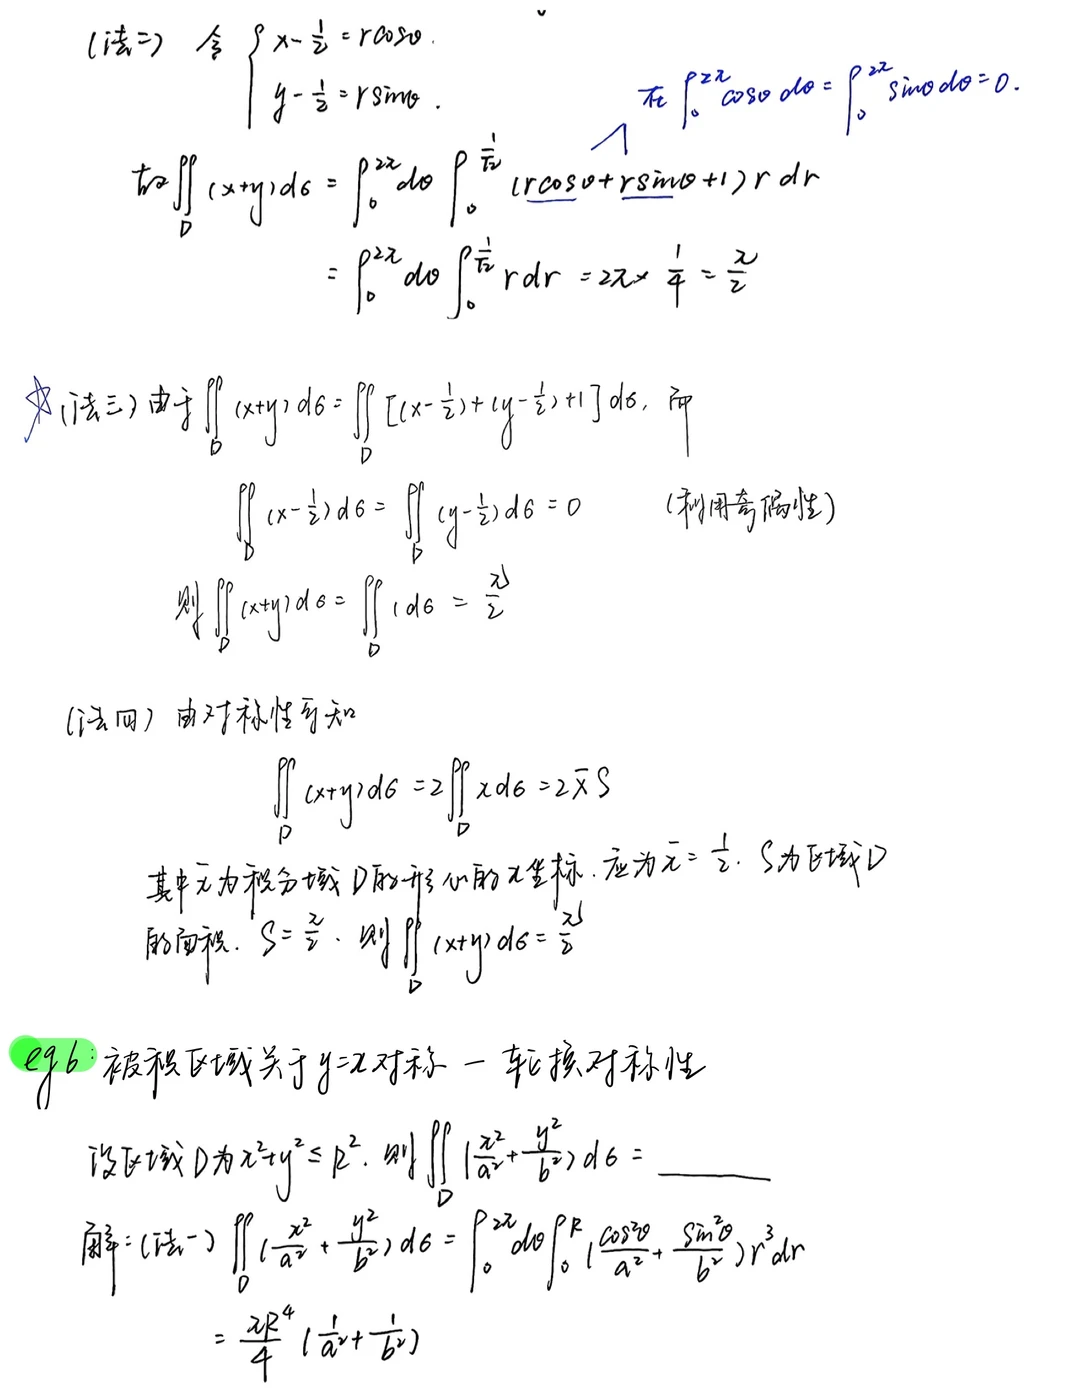 (法二) 令 { x-1/2=rcosθ.
y-1/2=rsinθ.
在∫₀^2π cosθdθ=∫₀^2π sinθdθ=0.
故∬_D (x+y)dσ = ∫₀^2π dθ ∫₀^(1/√2) (rcosθ+rsinθ+1)rdr
= ∫₀^2π dθ ∫₀^(1/√2) rdr = 2π× 1/4 = π/2
(法三) 由于∬_D (x+y)dσ = ∬_D [(x-1/2)+(y-1/2)+1]dσ, 而
∬_D (x-1/2)dσ = ∬_D (y-1/2)dσ = 0 (利用奇偶性)
则∬_D (x+y)dσ = ∬_D 1dσ = π/2
(法四) 由对称性可知
∬_D (x+y)dσ = 2∬_D xdσ = 2x̄S
其中x̄为积分域D的形心的x坐标. 应为x̄=1/2. S为区域D
的面积. S=π/2. 则∬_D (x+y)dσ=π/2
eg6: 被积区域关于y=x对称 — 轮换对称性
设区域D为x²+y²≤R². 则∬_D (x²/a²+y²/b²)dσ = ____
解:(法一) ∬_D (x²/a²+y²/b²)dσ = ∫₀^2π dθ ∫₀^R (cos²θ/a²+sin²θ/b²)r³dr
= πR⁴/4 (1/a²+1/b²)